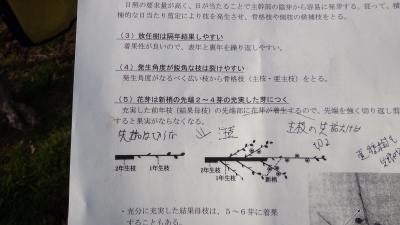 日照の要求量が高く、日が当たることで主幹部の陰芽から容易に発芽する。従って、積
極的な日当たり剪定により枝を発生させ、骨格枝や側枝の候補枝をとる。
（3）放任樹は隔年結果しやすい
着果性が良いので、表年と裏年を繰り返しやすい。
（4）発生角度が鋭角な枝は裂けやすい
発生角度がなるべく広い枝から骨格枝（主枝・亜主枝）をとる。
（5）花芽は新梢の先端2～4芽の充実した芽につく
充実した前年枝（結果母枝）の先端部に花芽が着生するので、先端を強く切り返し剪
すると果実がならなくなる。
主枝の
2年生枝
1年生枝
2年生枝
1年生枝
新梢
・充分に充実した結果母枝は、5～6芽に着果
することもある。